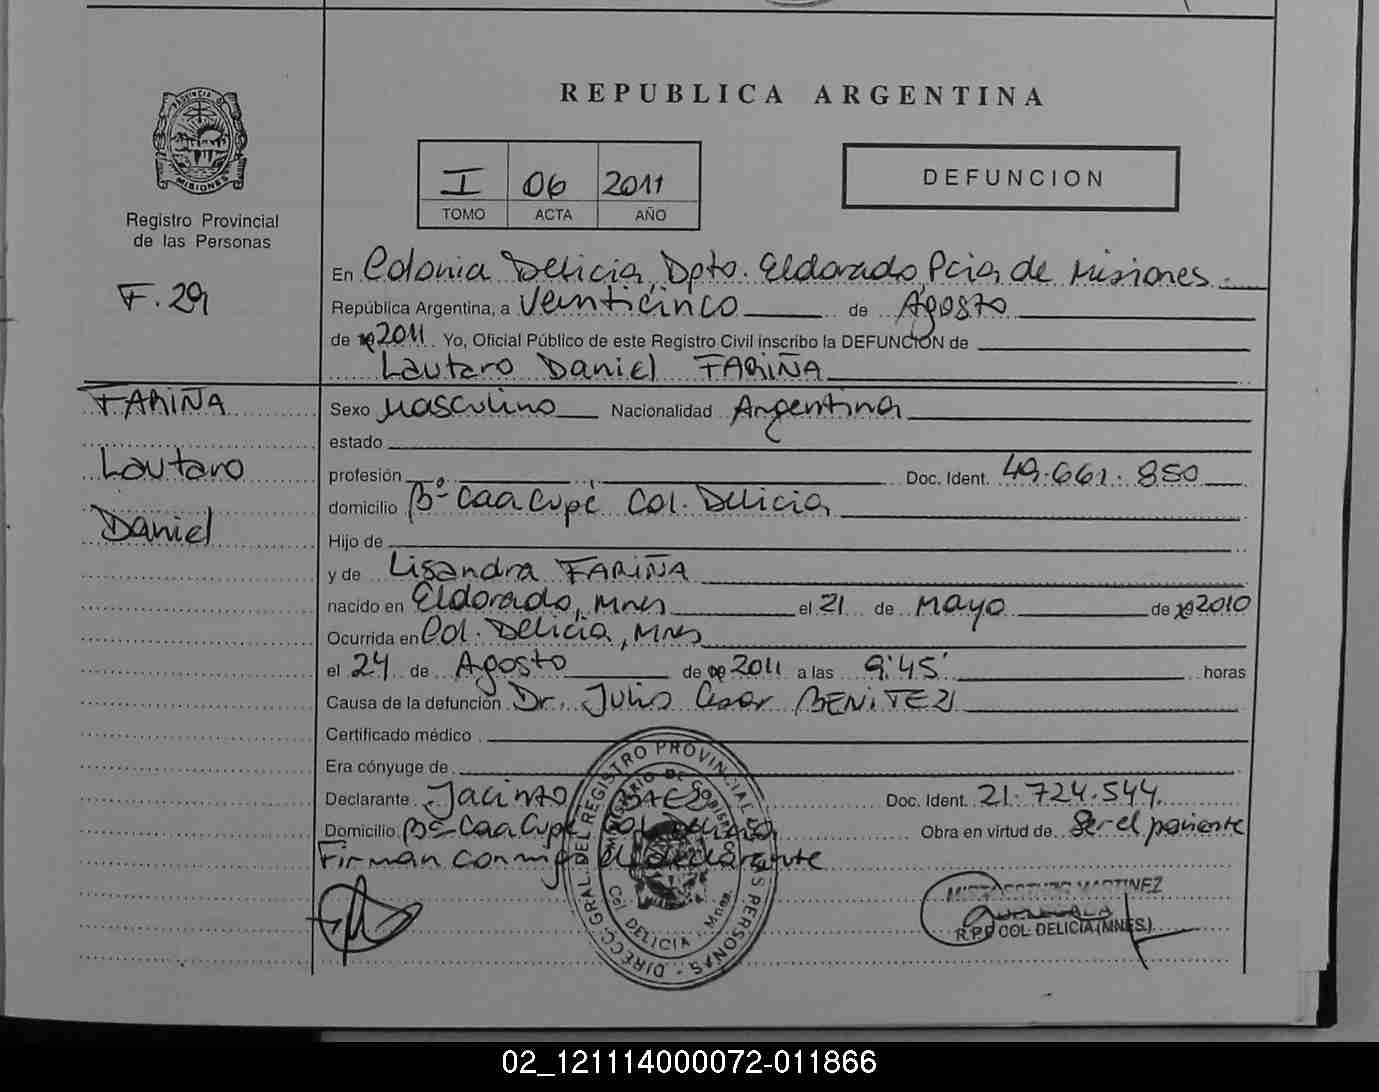 REPUBLICA ARGENTINA
PROVINCIA D MISIONES
Registro Provincial
de las Personas
F. 29
I 06 2011
TOMO ACTA AÑO
DEFUNCION
En Colonia Delicia, Dpto. Eldorado, Pcia de Misiones.
República Argentina, a Veinticinco de Agosto
de 2011. Yo, Oficial Público de este Registro Civil inscribo la DEFUNCION de
Lautaro Daniel FARIÑA
FARIÑA
Lautaro
Daniel
Sexo Masculino Nacionalidad Argentina
estado
profesión Doc. Ident. 49.661.850
domicilio Bº Caacupé Col. Delicia
Hijo de
y de Lisandra FARIÑA
nacido en Eldorado, Mnes el 21 de Mayo de 2010
Ocurrida en Col. Delicia, Mnes
el 24 de Agosto de 2011 a las 9:45' horas
Causa de la defunción Dr. Julio Cesar BENITEZ
Certificado médico
Era cónyuge de
Declarante Jacinto BAEZ Doc. Ident. 21.724.544.
Domicilio Bº Caacupé Col. Delicia Obra en virtud de Ser el pariente
Firman conmigo el declarante
DIRECC. GRAL. DEL REGISTRO PROVINCIAL DE LAS PERSONAS
MINISTERIO DE GOBIERNO
Col. DELICIA - Mnes.
MARTINEZ
R.P.P COL. DELICIA (MNES.)
02_121114000072-011866